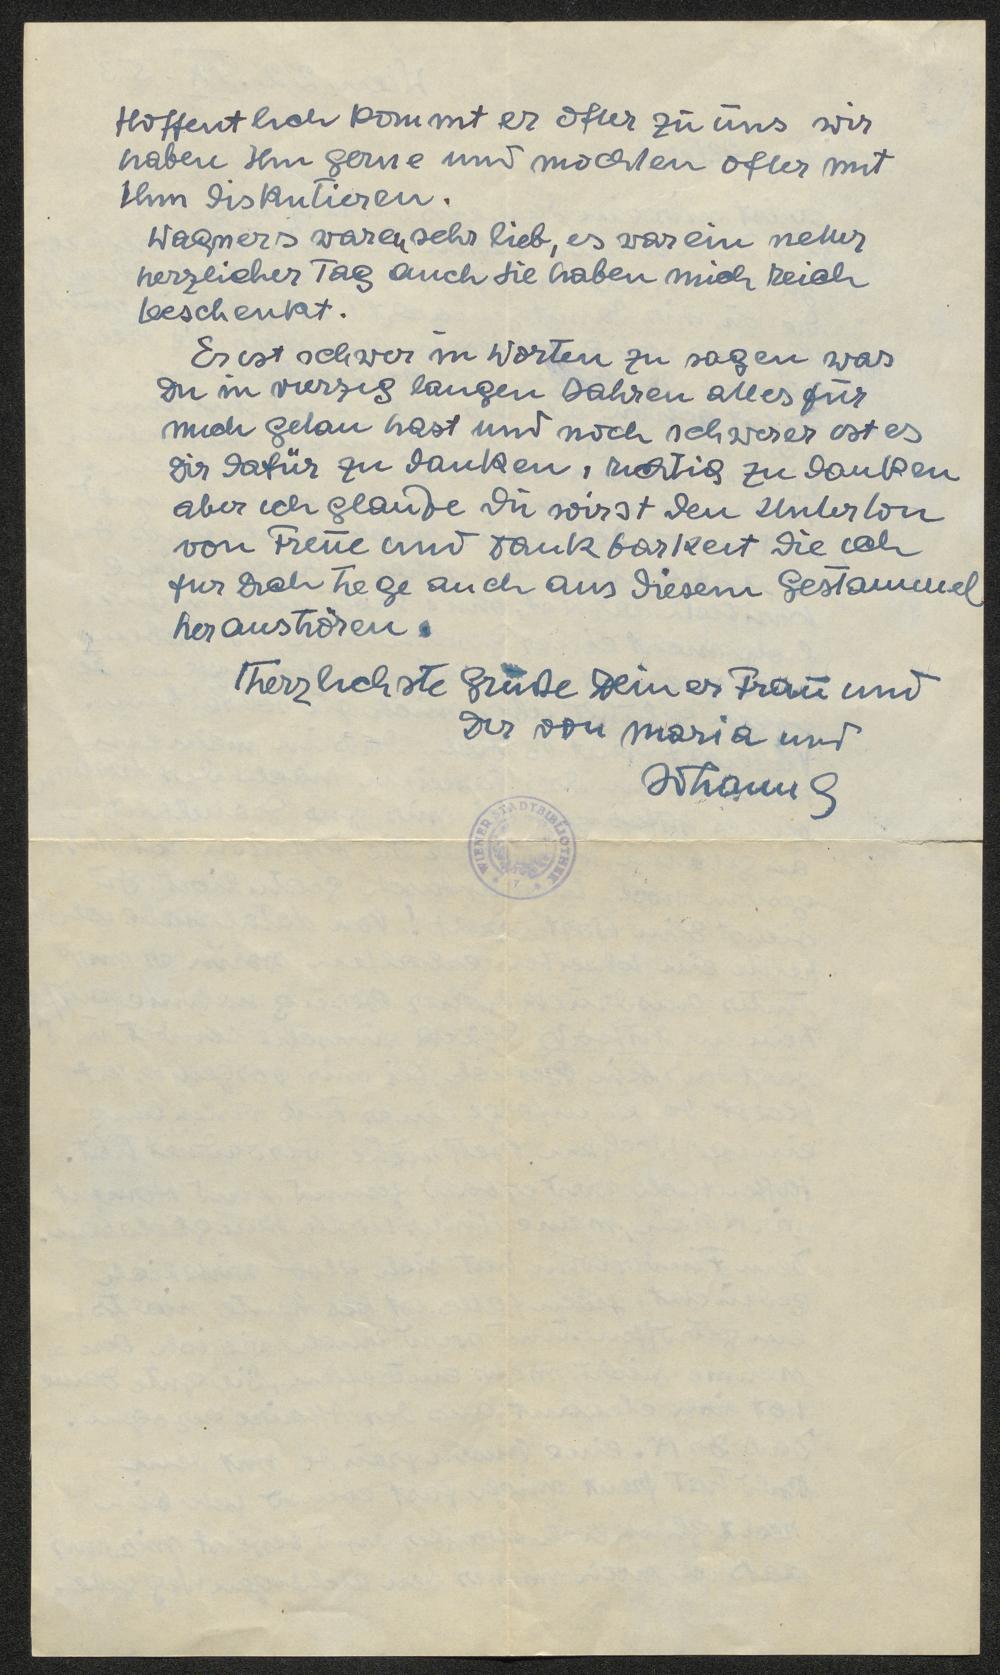 Hoffentlich kommt er öfter zu uns wir
haben Ihn gerne und möchten öfter mit
Ihm diskutieren.
Wagners waren sehr lieb, es war ein netter
herzlicher Tag auch sie haben mich reich
beschenkt.
Es ist schwer in Worten zu sagen was
Du in vierzig langen Jahren alles für
mich getan hast und noch schwerer ist es
Dir dafür zu danken, richtig zu danken
aber ich glaube Du wirst den Unterton
von Treue und Dankbarkeit die ich
für Dich hege auch aus diesem Gestammel
heraushören.
Herzlichste Grüße Deiner Frau und
Dir von Maria und
WIENER STADTBIBLIOTHEK